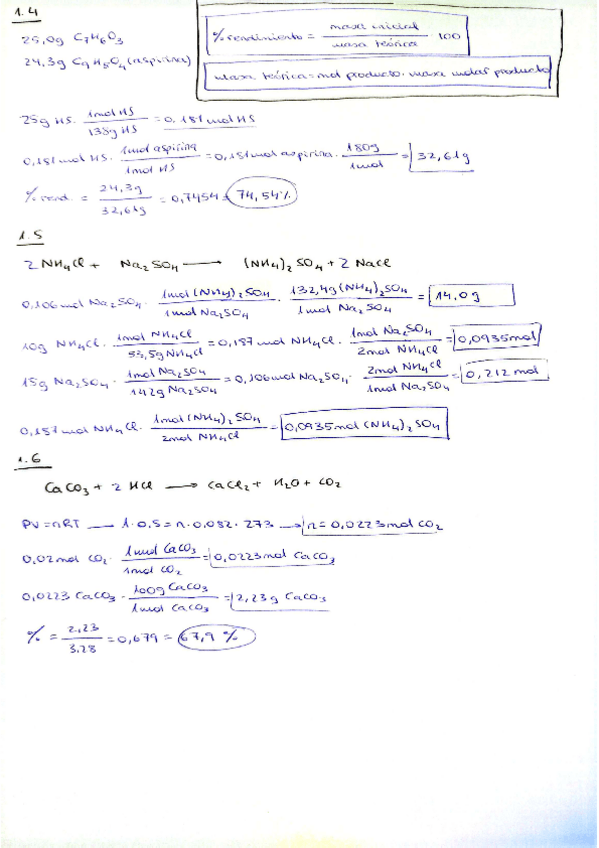 1.4
25,0g C7H6O3
24,3g C9H8O4 (aspirina)
% rendimiento = masa inicial / masa teórica · 100
masa teórica = mol producto · masa molar producto
25g HS · 1mol HS / 138g HS = 0,181 mol HS
0,181 mol HS · 1mol aspirina / 1mol HS = 0,181 mol aspirina · 180g / 1mol = 32,61g
% rend = 24,3g / 32,61g = 0,7454 = 74,54%
1.5
2 NH4Cl + Na2SO4 ⟶ (NH4)2SO4 + 2 NaCl
0,106 mol Na2SO4 · 1mol (NH4)2SO4 / 1mol Na2SO4 · 132,4g (NH4)2SO4 / 1mol Na2SO4 = 14,0g
10g NH4Cl · 1mol NH4Cl / 53,5g NH4Cl = 0,187 mol NH4Cl · 1mol Na2SO4 / 2mol NH4Cl = 0,0935mol
15g Na2SO4 · 1mol Na2SO4 / 142g Na2SO4 = 0,106 mol Na2SO4 · 2mol NH4Cl / 1mol Na2SO4 = 0,212 mol
0,187 mol NH4Cl · 1mol (NH4)2SO4 / 2mol NH4Cl = 0,0935 mol (NH4)2SO4
1.6
CaCO3 + 2 HCl ⟶ CaCl2 + H2O + CO2
PV=nRT ⟶ 1·0,5 = n·0,082·273 ⟶ n = 0,0223 mol CO2
0,02 mol CO2 · 1mol CaCO3 / 1mol CO2 = 0,0223 mol CaCO3
0,0223 CaCO3 · 100g CaCO3 / 1mol CaCO3 = 2,23g CaCO3
% = 2,23 / 3,28 = 0,679 = 67,9 %